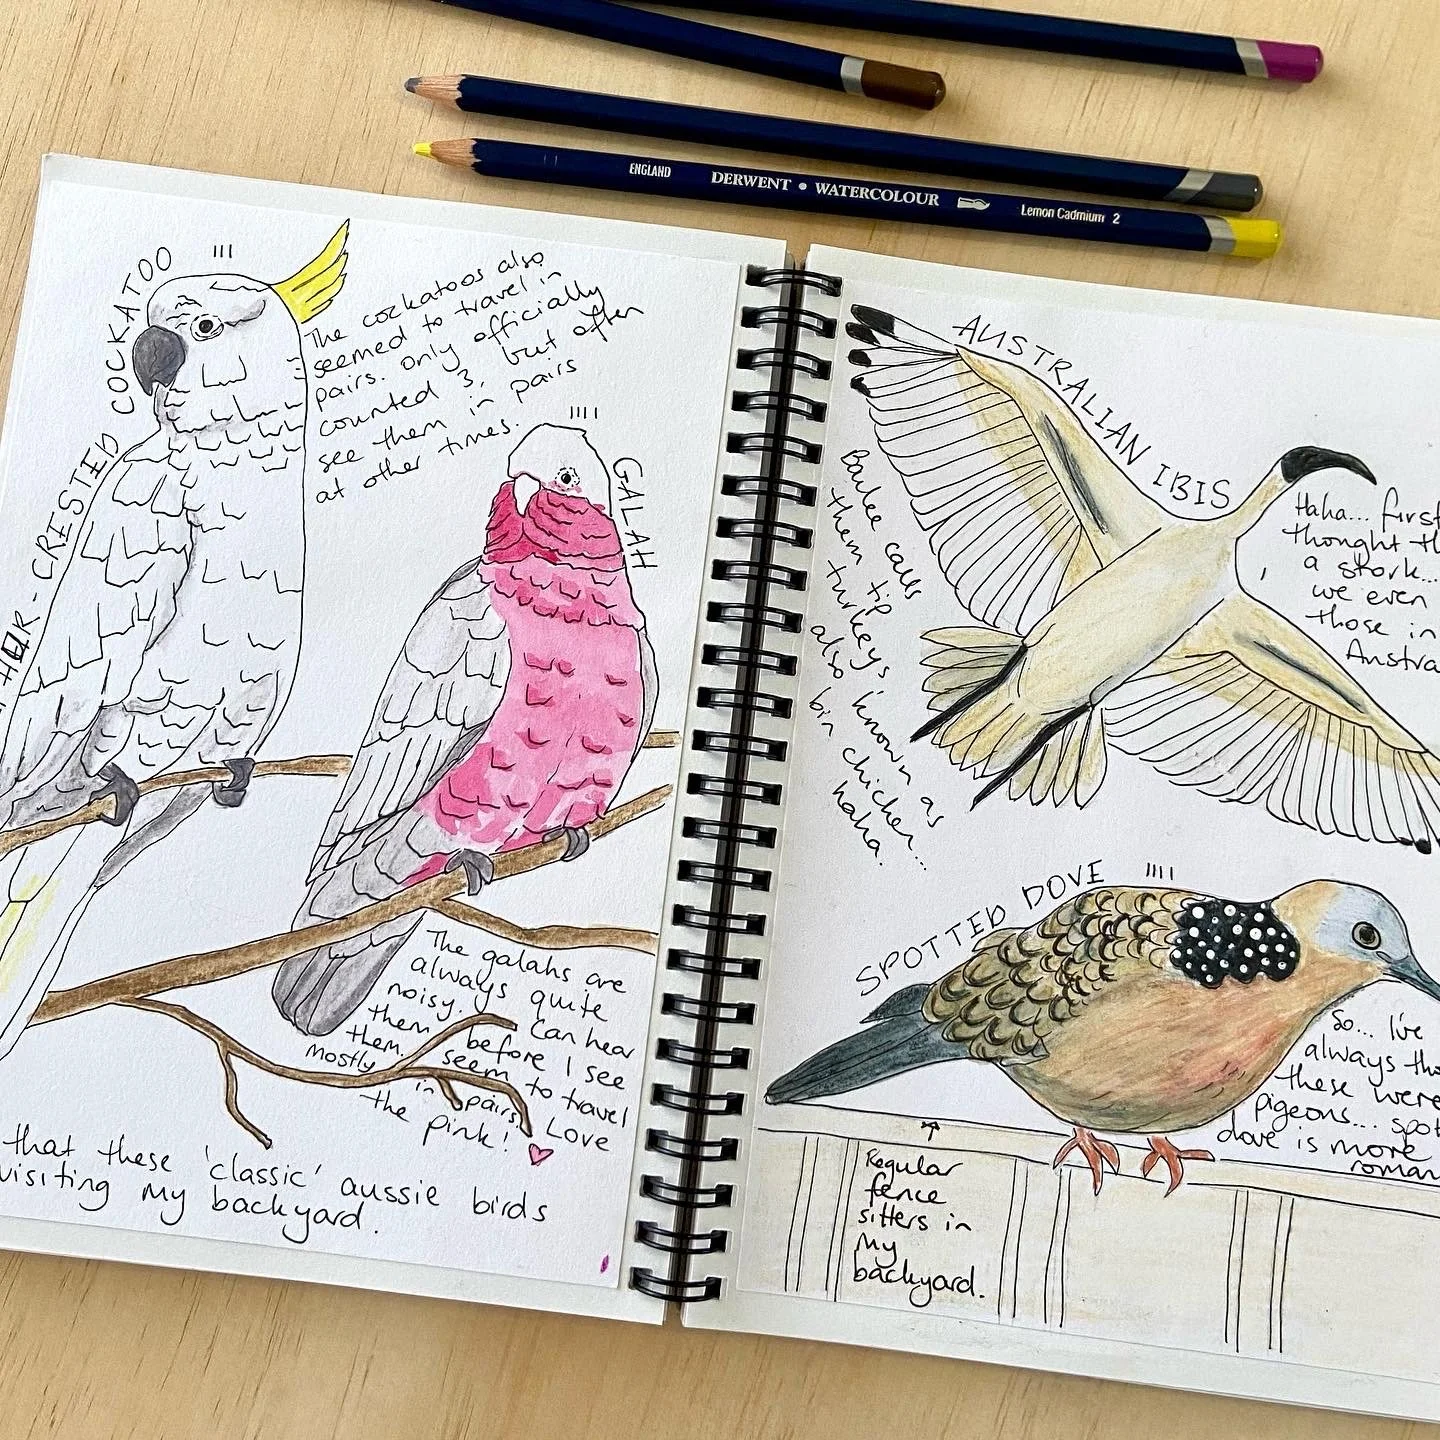 ENGLAND DERWENT • WATERCOLOUR Lemon Cadmium 2
-CRISTED COCKATOO
The cockatoos also
seemed to travel in
pairs. only officially
counted 3, but often
see them in pairs
at other times.
GALAH
The galahs are
always quite
noisy. Can hear
them before I see
them. seem to travel
mostly in pairs. Love
the pink!
that these 'classic' aussie birds
visiting my backyard.
AUSTRALIAN IBIS
calls
them tip
turkeys
also known as
bin chicken...
haha.
Haha... first
thought
a stork...
we even
those in
SPOTTED DOVE
So... I've
always
these were
pigeons...
dove is more
Regular
fence
sitters in
my
backyard.